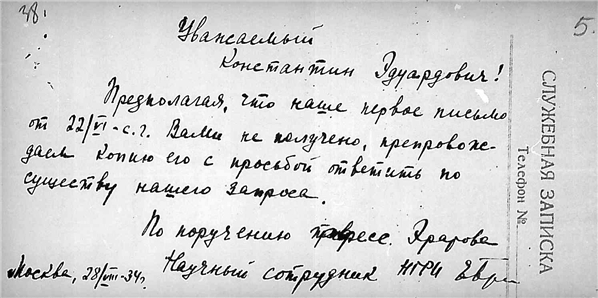 38.
5.
Уважаемый
Константин Эдуардович!
Предполагая, что наше первое письмо
от 22/VI-с.г. Вами не получено, препровож-
даем копию его с просьбой ответить по
существу нашего запроса.
По поручению
Научный сотрудник
Москва, 28/VIII-34г.
СЛУЖЕБНАЯ ЗАПИСКА
Телефон №